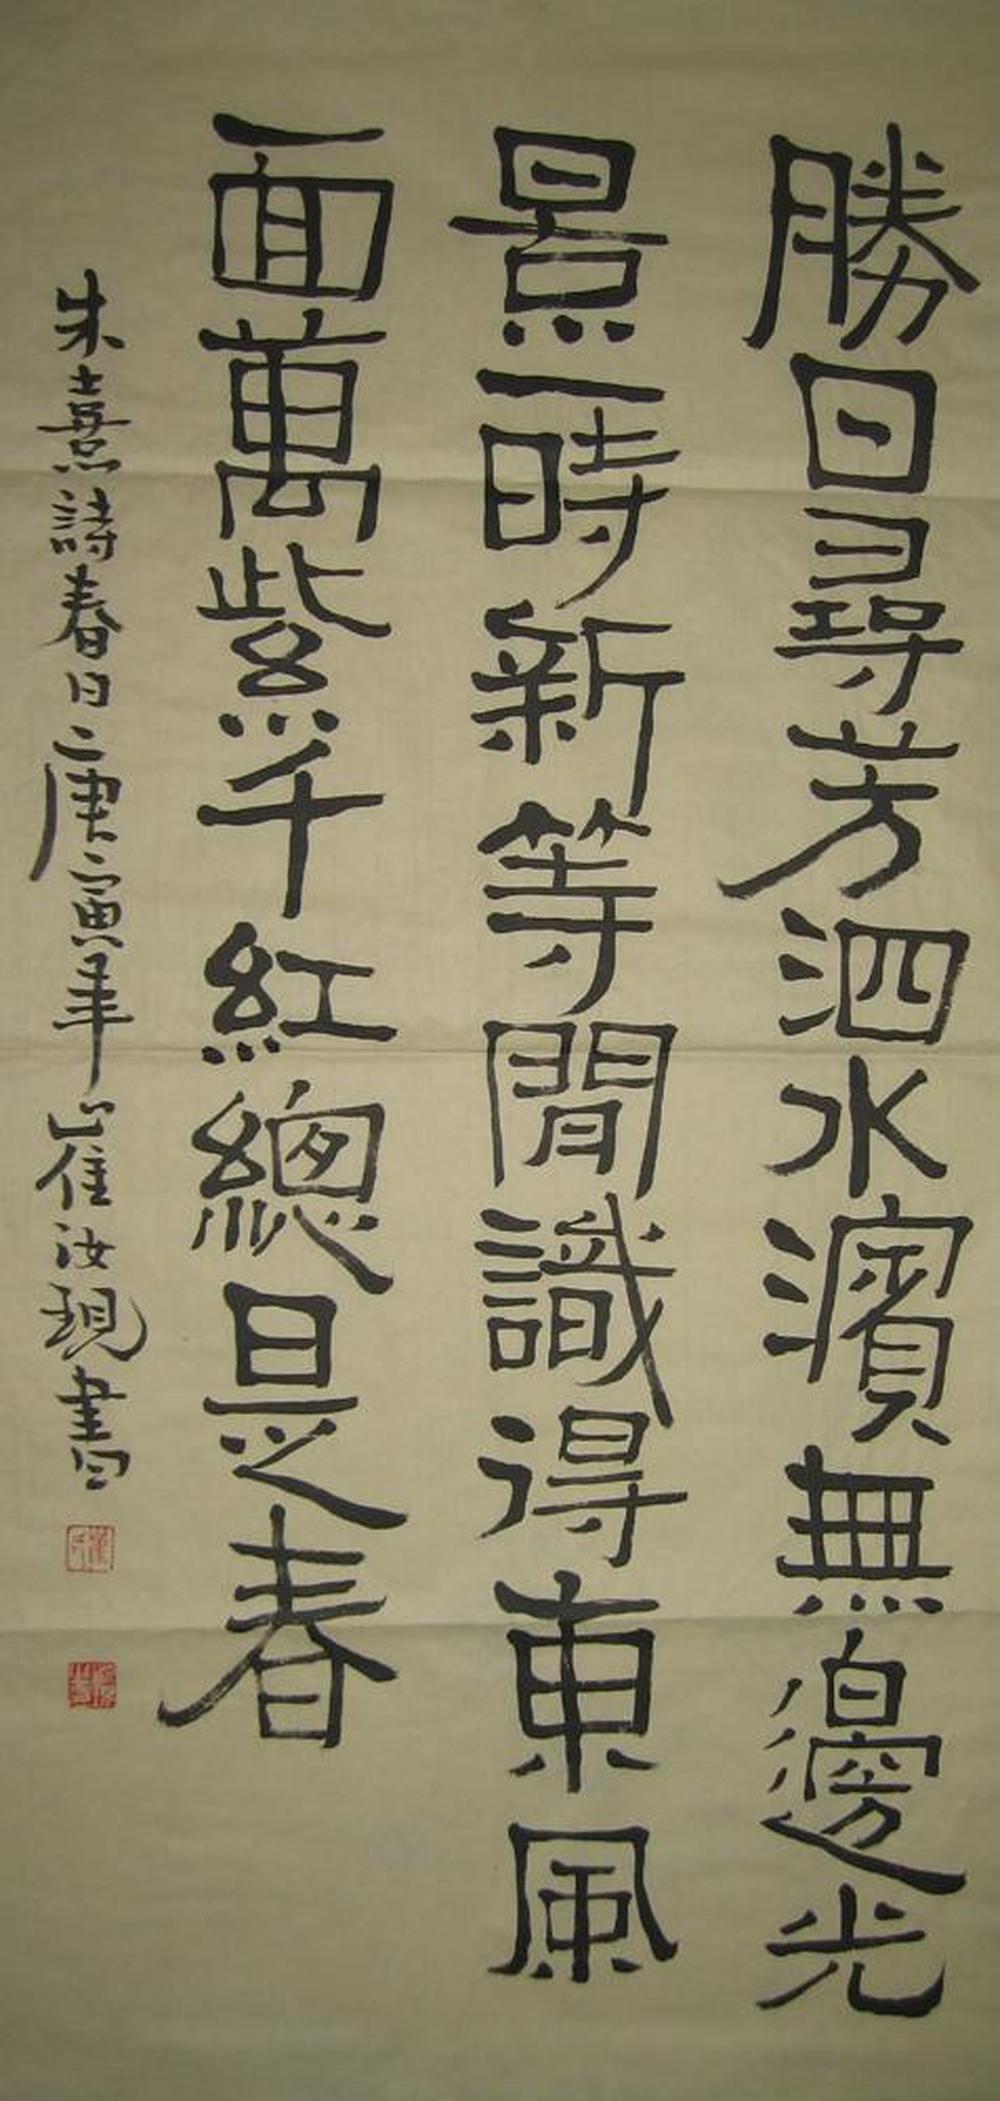 勝日尋芳泗水濱無邊光
景一時新等閒識得東風
面萬紫千紅總是春
朱熹詩春日二庚寅年崔汝現書